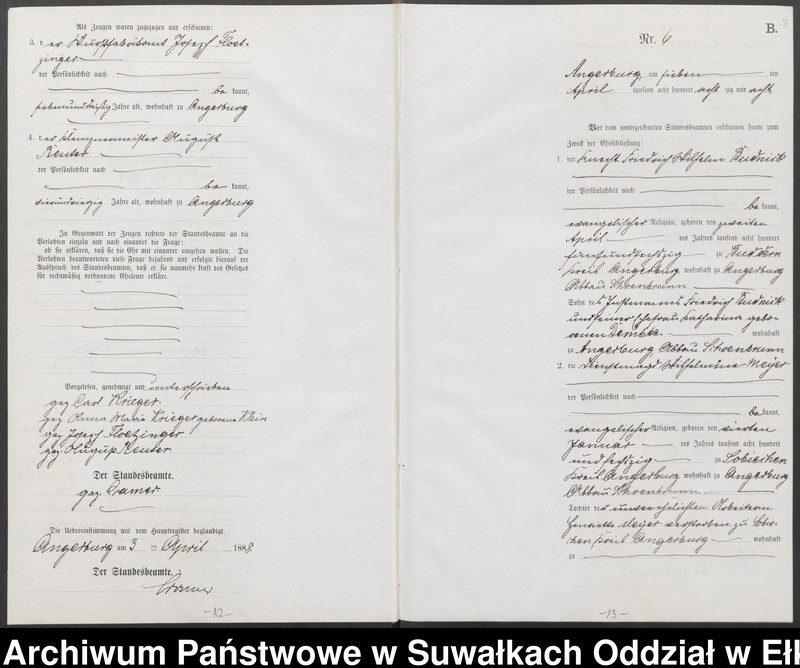 Als Zeugen waren zugezogen und erschienen:
3. der Wurstfabrikant Joseph Floet-
zinger
der Persönlichkeit nach
be kannt,
siebenunddreißig Jahre alt, wohnhaft zu Angerburg
4. der Klempnermeister August
Reuter
der Persönlichkeit nach
be kannt,
vierundvierzig Jahre alt, wohnhaft zu Angerburg
In Gegenwart der Zeugen richtete der Standesbeamte an die
Verlobten einzeln und nach einander die Frage:
ob sie erklären, daß sie die Ehe mit einander eingehen wollen. Die
Verlobten beantworteten diese Frage bejahend und erfolgte hierauf der
Ausspruch des Standesbeamten, daß er sie nunmehr kraft des Gesetzes
für rechtmäßig verbundene Eheleute erkläre.
Vorgelesen, genehmigt und unterschrieben
gez Carl Krieger
gez Anna Maria Krieger geborene Klein
gez Joseph Floetzinger
gez August Reuter
Der Standesbeamte.
gez Cramer
Die Uebereinstimmung mit dem Hauptregister beglaubigt.
Angerburg am 3 ten April 1888.
Der Standesbeamte.
Cramer
-12-
B.
Nr. 6
Angerburg, am sieben ten
April tausend acht hundert acht zig und acht
Vor dem unterzeichneten Standesbeamten erschienen heute zum
Zweck der Eheschließung:
1. der Knecht Friedrich Wilhelm Rudnick
der Persönlichkeit nach
be kannt,
evangelischer Religion, geboren den zweiten
April des Jahres tausend acht hundert
fünfundsechszig zu Buddern
Kreis Angerburg, wohnhaft zu Angerburg
Abbau Schoenbrunn
Sohn des Instmanns Friedrich Rudnick
und seiner Ehefrau Katharina gebo-
renen wohnhaft
zu Angerburg Abbau Schoenbrunn
2. die Dienstmagd Wilhelmine Meyer
der Persönlichkeit nach
be kannt,
evangelischer Religion, geboren den vierten
Januar des Jahres tausend acht hundert
undsechszig zu Sobiechen
Kreis Angerburg, wohnhaft zu Angerburg
Abbau Schoenbrunn
Tochter der unverehelichten Arbeiterin
Henriette Meyer verstorben zu Sobie-
chen Kreis Angerburg wohnhaft
zu
-13-
Archiwum Państwowe w Suwałkach Oddział w Eł